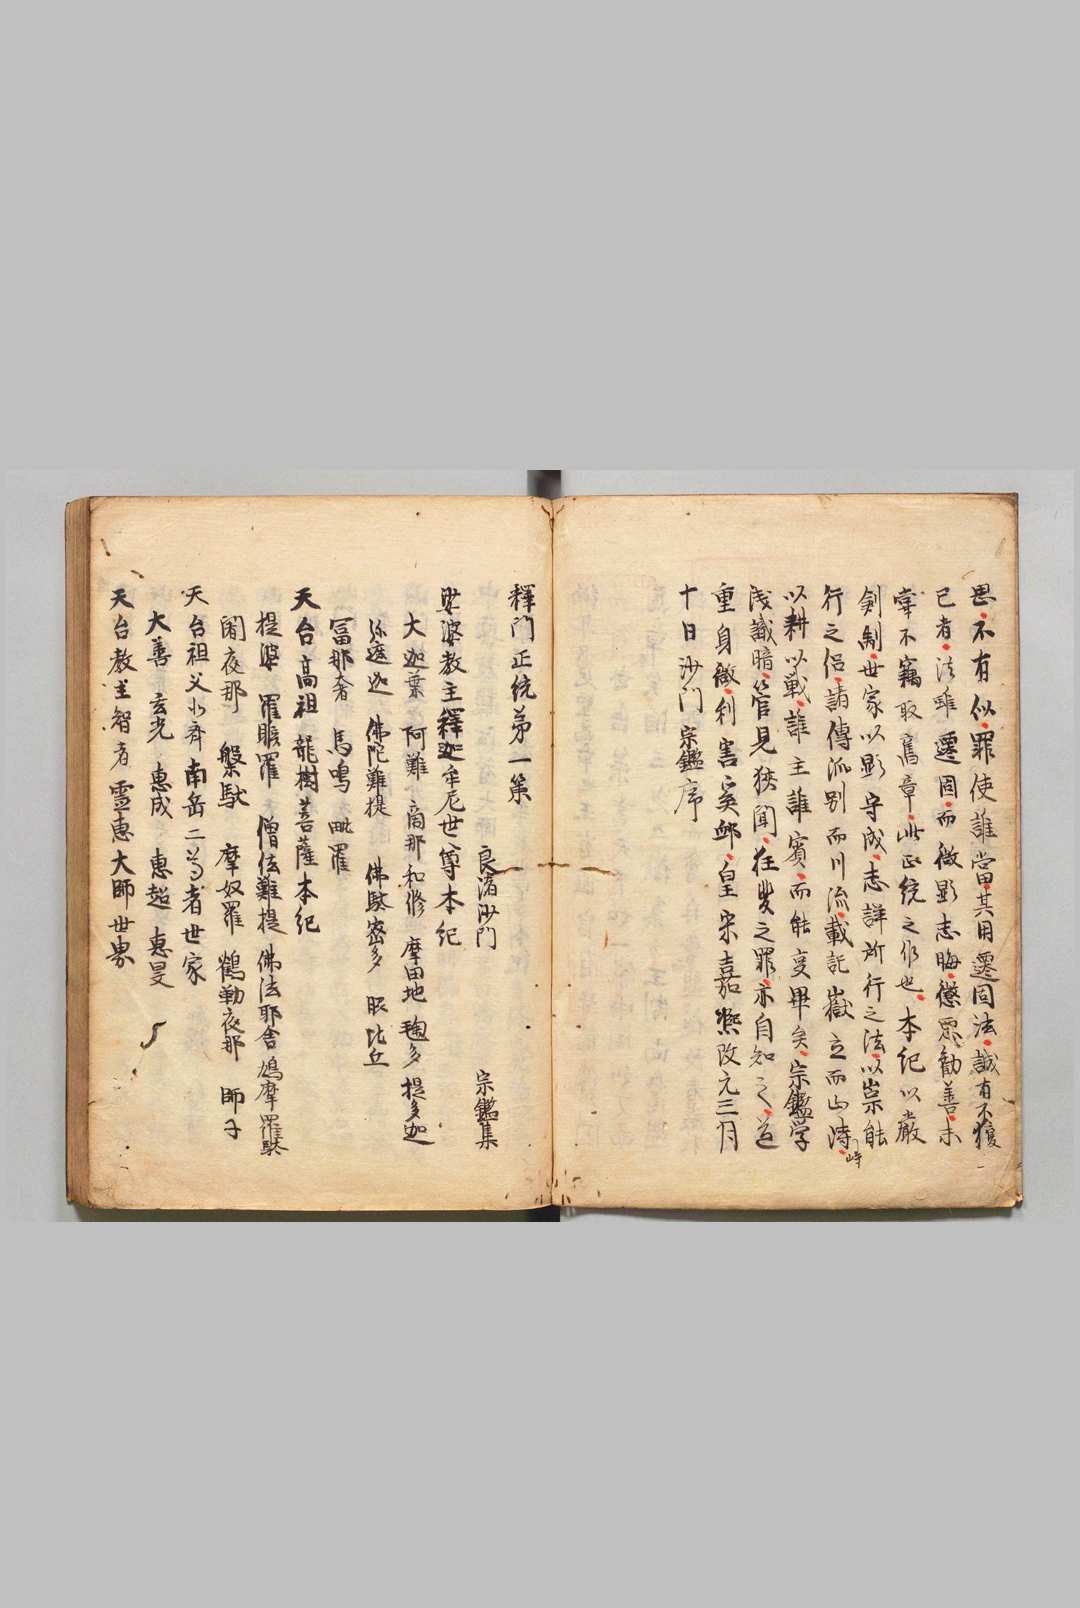 思不有似罪使誰當其用遷固法誠有不獲
已者法雖遷固而微顯志晦懲惡勸善未
嘗不竊取舊章此正統之作也本紀以嚴
剏制世家以顯守成志詳所行之法以崇能
行之侶諸傳派別而川流載記嶽立而山峙
峙
以耕以戰誰主誰賓而能事畢矣宗鑑学
淺識暗管見狹聞狂叟之罪亦自知之道
重身微利害奚卹皇宋嘉熙改元三月
十日沙門宗鑑序
釋門正統第一第
良渚沙門 宗鑑集
娑婆教主釋迦牟尼世尊本紀
大迦葉 阿難 商那和修 摩田地 毱多 提多迦
弥遮迦 佛陀難提 佛馱密多 眼比丘
冨那奢 馬鳴 毗羅
天台高祖龍樹菩薩本紀
提婆 羅睺羅 僧佉難提 佛法耶舍 鳩摩羅馱
闍夜那 槃馱 摩奴羅 鶴勒夜那 師子
天台祖父北齊南岳二尊者世家
大善 玄光 惠成 惠超 惠旻
天台教主智者靈惠大師世界